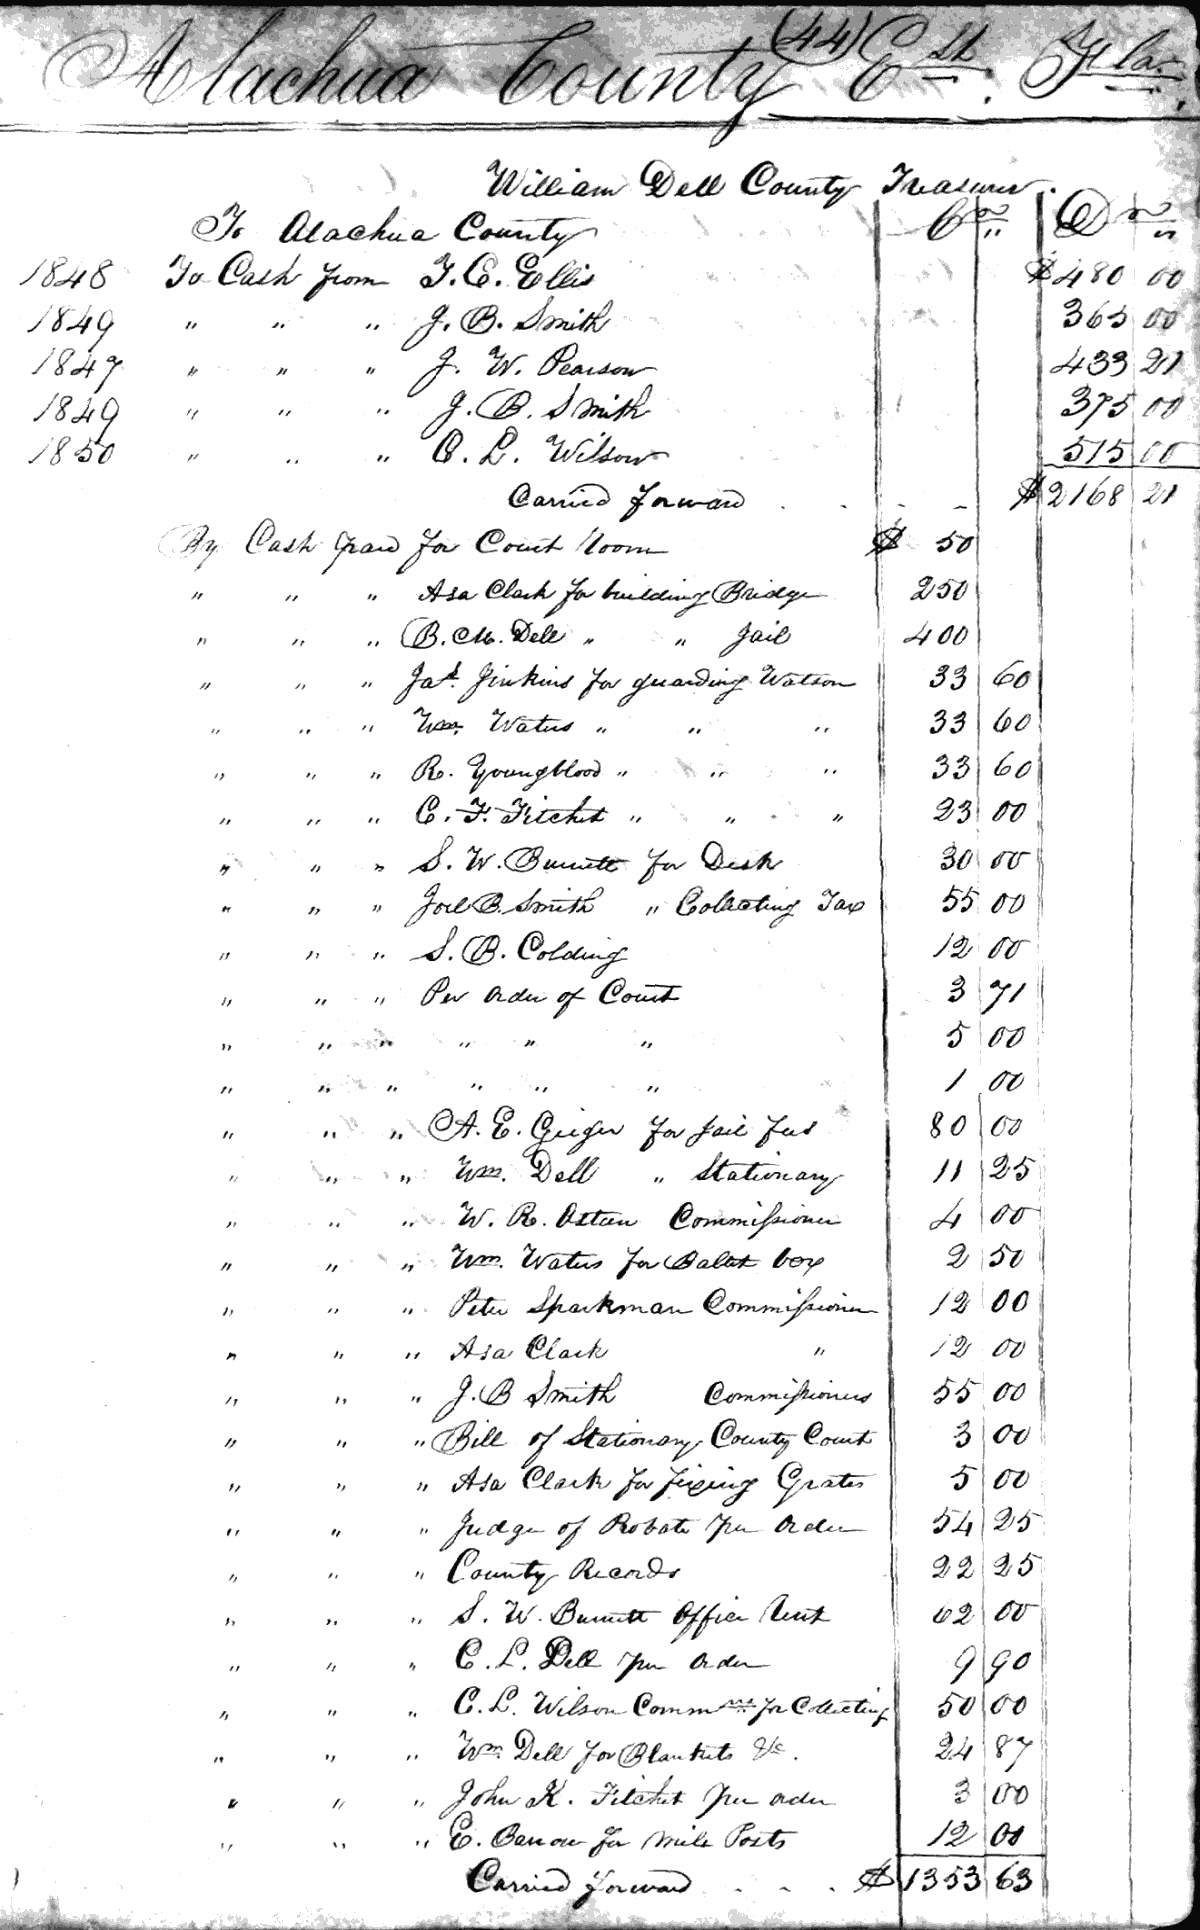 Alachua County (44) E. Fla.
William Dell County Treasurer.
To Alachua County Cr Dr
1848 To Cash from T. C. Ellis $480 00
1849 " " " J. B. Smith 365 00
1847 " " " J. W. Pearson 433 21
1849 " " " J. B. Smith 375 00
1850 " " " C. L. Wilson 515 00
Carried forward . . . - $2168 21
By Cash paid for Court Room $ 50
" " " Asa Clark for building Bridge 250
" " " B. M. Dell " " Jail 400
" " " Jas. Jinkins for guarding Watson 33 60
" " " Wm. Waters " " " 33 60
" " " R. Youngblood " " " 33 60
" " " C. F. Fitchet " " " 23 00
" " " S. W. Burnett for Desk 30 00
" " " Joel B. Smith " Collecting Tax 55 00
" " " S. B. Colding 12 00
" " " Per order of Court 3 71
" " " " " " 5 00
" " " " " " 1 00
" " " A. E. Geiger for jail fees 80 00
" " " Wm. Dell " Stationary 11 25
" " " W. R. Commissioner 4 00
" " " Wm. Waters for Balot box 2 50
" " " Peter Sparkman Commissioner 12 00
" " " Asa Clark " 12 00
" " " J. B Smith Commissioners 55 00
" " " Bill of Stationary County Court 3 00
" " " Asa Clark for fixing Grates 5 00
" " " Judge of Robate per order 54 25
" " " County Records 22 25
" " " S. W. Burnett Office Rent 62 00
" " " C. L. Dell per order 9 90
" " " C. L. Wilson Commns for Collecting 50 00
" " " Wm. Dell for Blankets &c. 24 87
" " " John K. Fitchet per order 3 00
" " " E. Barrow for Mile Posts 12 00
Carried forward . . . $1353 63